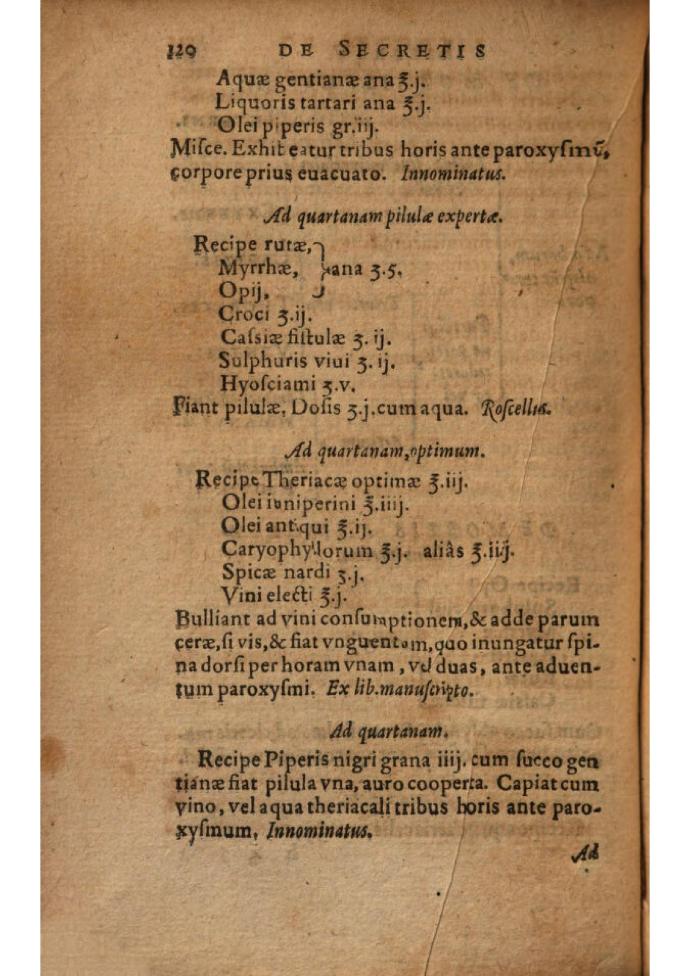 320 DE SECRETIS
Aquæ gentianæ ana ℥.j.
Liquoris tartari ana ℥.j.
Olei piperis gr.iij.
Miſce. Exhibeatur tribus horis ante paroxyſmũ,
corpore prius euacuato. Innominatus.
Ad quartanam pilulæ expertæ.
Recipe rutæ,
Myrrhæ, } ana ʒ.5.
Opij,
Croci ʒ.ij.
Caſsiæ fiſtulæ ʒ. ij.
Sulphuris viui ʒ. ij.
Hyoſciami ʒ.v.
Fiant pilulæ, Doſis ʒ.j.cum aqua. Roſcellus.
Ad quartanam, optimum.
Recipe Theriacæ optimæ ℥.iij.
Olei iuniperini ℥.iiij.
Olei antiqui ℥.ij.
Caryophyllorum ℥.j. aliâs ℥.iij.
Spicæ nardi ʒ.j.
Vini electi ℥.j.
Bulliant ad vini conſumptionem, & adde parum
ceræ, ſi vis, & fiat vnguentum, quo inungatur ſpi-
na dorſi per horam vnam, vel duas, ante aduen-
tum paroxyſmi. Ex lib.manuſcripto.
Ad quartanam.
Recipe Piperis nigri grana iiij. cum ſucco gen
tianæ fiat pilula vna, auro cooperta. Capiat cum
vino, vel aqua theriacali tribus horis ante paro-
xyſmum, Innominatus.
Ad